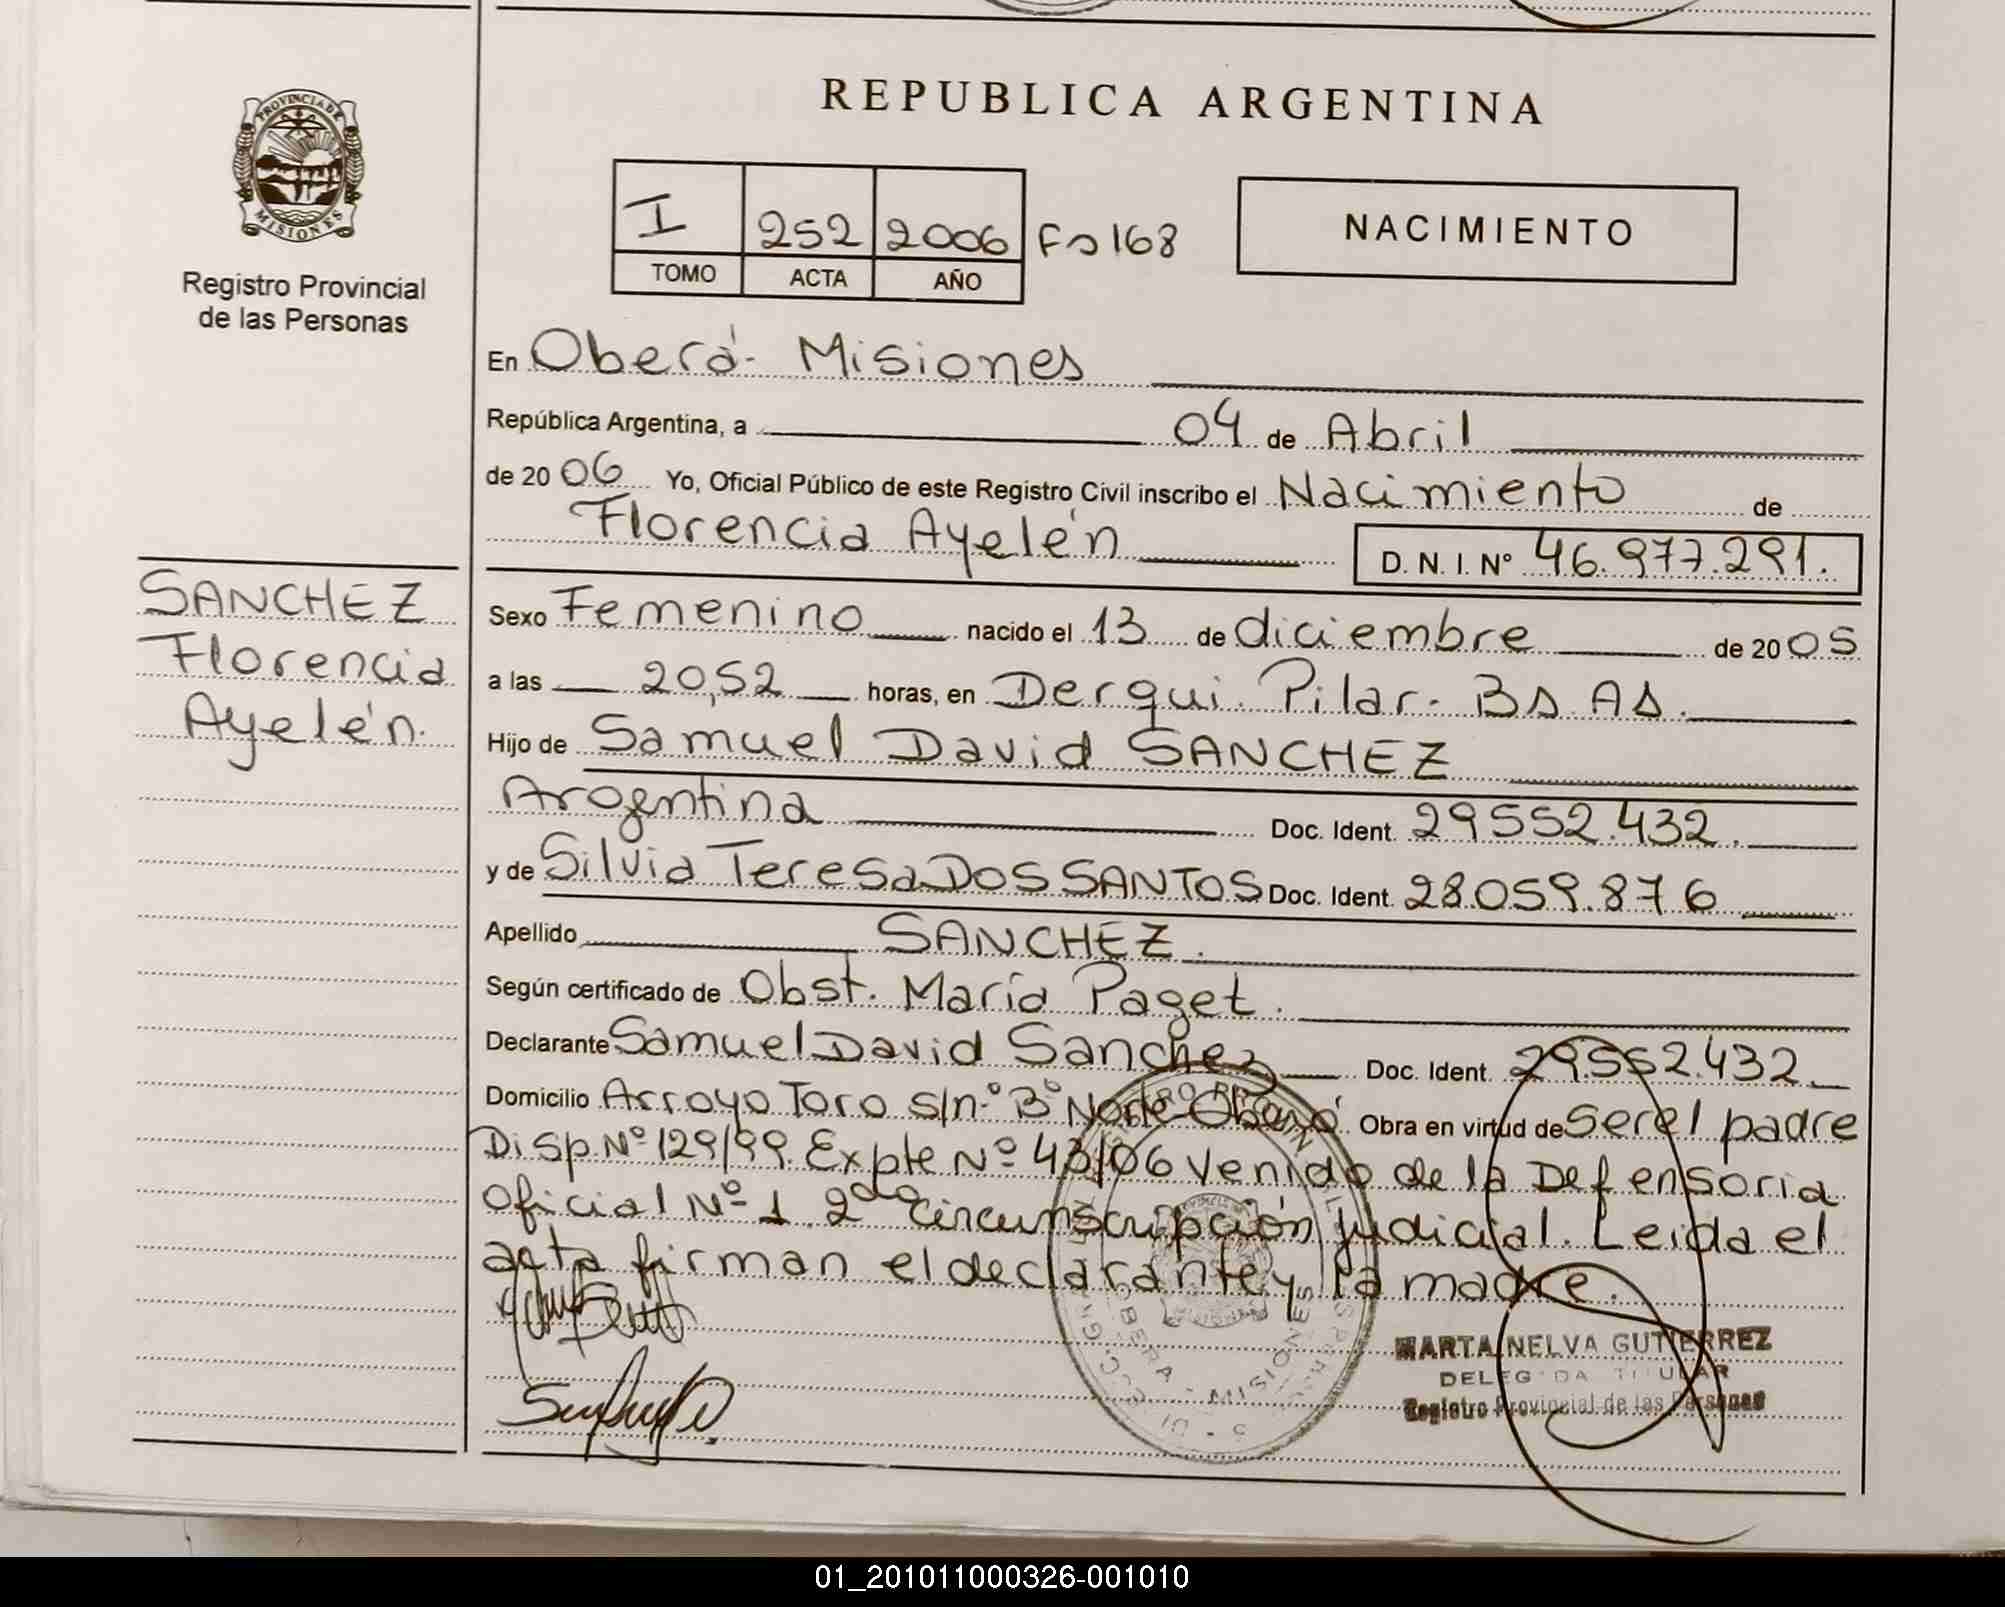 REPUBLICA ARGENTINA
PROVINCIA DE
MISIONES
Registro Provincial
de las Personas
I 252 2006 Fo 168
TOMO ACTA AÑO
NACIMIENTO
En Oberá - Misiones
República Argentina, a 04 de Abril
de 2006 Yo, Oficial Público de este Registro Civil inscribo el Nacimiento de
Florencia Ayelén D. N. I. Nº 46.977.291.
SANCHEZ
Florencia
Ayelén.
Sexo Femenino nacido el 13 de diciembre de 2005
a las 20,52 horas, en Derqui. Pilar. Bs As.
Hijo de Samuel David SANCHEZ
Argentina Doc. Ident. 29552.432.
y de Silvia Teresa DOS SANTOS Doc. Ident. 28.059.876
Apellido SANCHEZ.
Según certificado de Obst. María Paget.
Declarante Samuel David Sanchez Doc. Ident. 29.552.432.
Domicilio Arroyo Toro s/n.º Bº Norte-Oberá Obra en virtud de ser el padre
Disp. Nº 129/99. Expte Nº 43/06 venido de la Defensoria
Oficial Nº 1. 2da circunscripción judicial. Leida el
acta firman el declarante y la madre.
OBERA - MISIONES
MARTA NELVA GUTIERREZ
DELEGADA TITULAR
Registro Provincial de las Personas
01_201011000326-001010